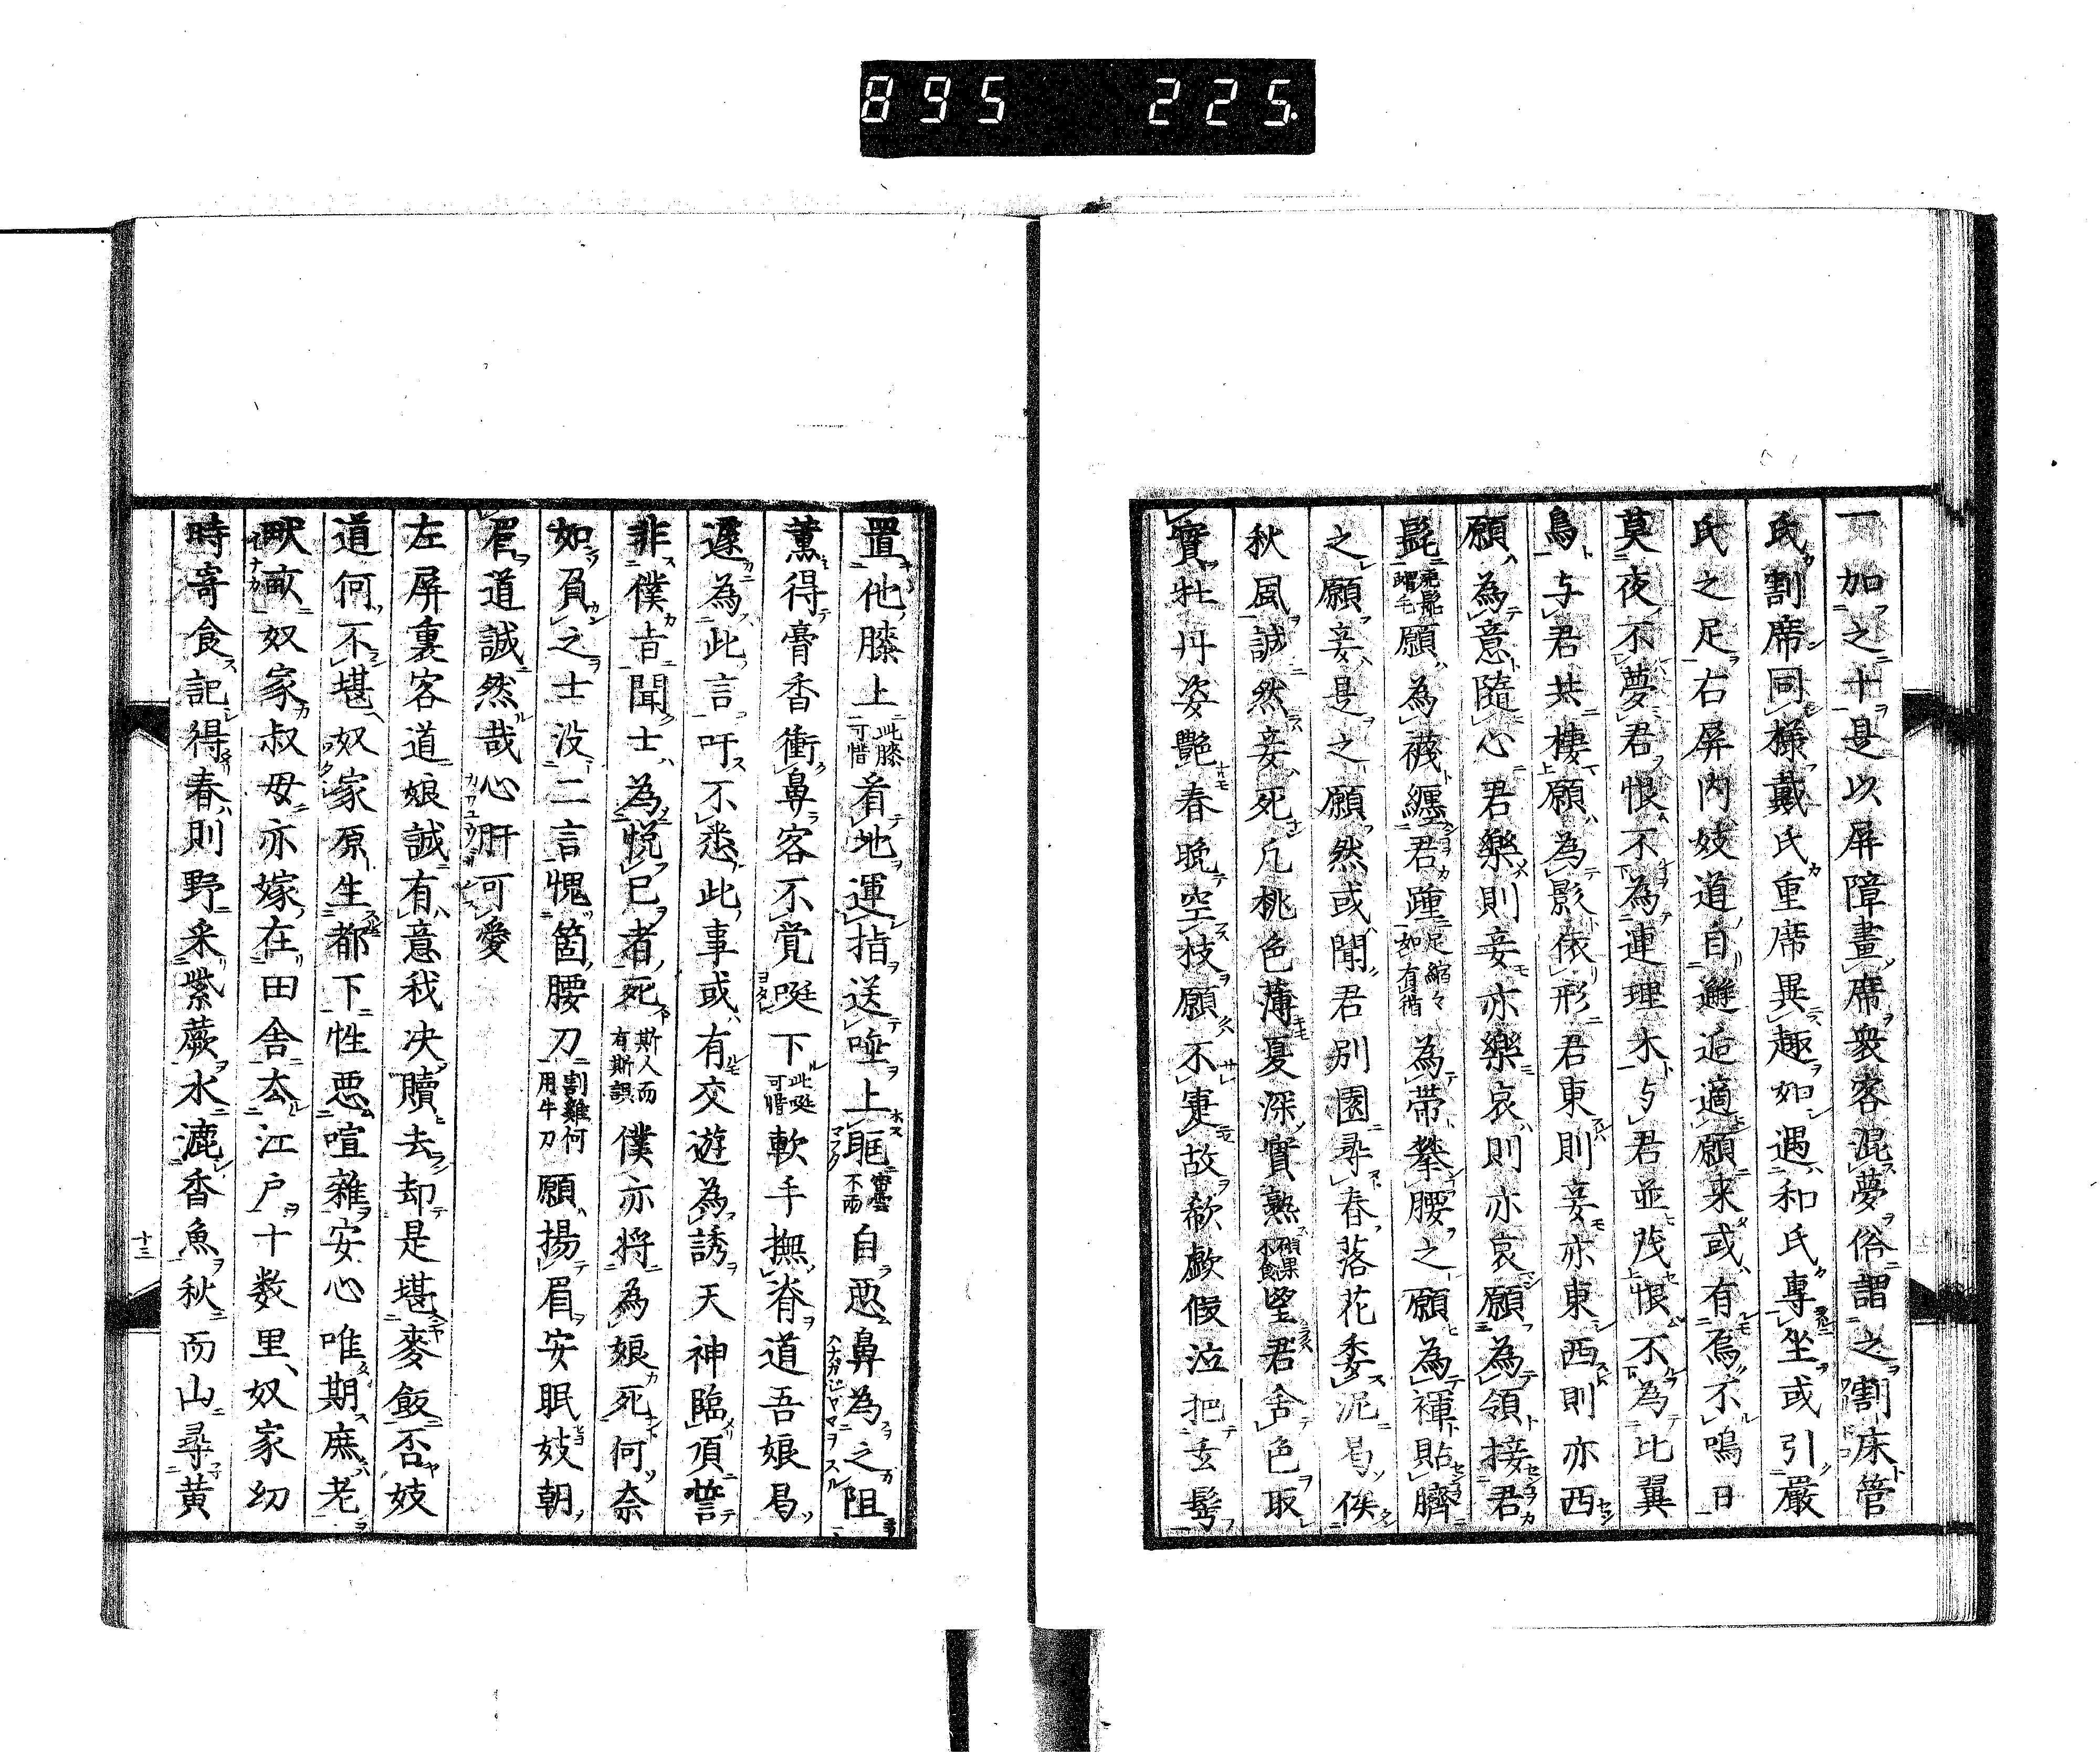 895 225.
一加之十是以屏障畫席衆客混夢俗謂之割床管
氏割席同樣戴氏重席異趣如遇和氏專坐或引嚴
氏之足右屏內妓道自邂逅適願来或有為不鳴日
莫夜不夢君恨不為連理木与君並茂恨不為比翼
鳥与君共棲願為影依形君東則妾亦東西則亦西
願為意隨心君樂則妾亦樂哀則亦哀願為領接君
髭願為襪纏君踵足縮々如有循為帶攀腰之願為褌貼臍
之願妾是之願然或聞君別園尋春落花委泥曷俟
秋風誠然妾死凡桃色薄夏深實熟碩果不食望君舍色取
實牡丹姿艷春晚空枝願不寔故欷歔假泣把玄髩
置他膝上此膝可惜看地運指送唾上眶密雲不雨自惡鼻為之阻
薰得膏香衝鼻客不覚唌下此唌可惜軟手撫脊道吾娘曷
遽為此言吁不悉此事或有交遊為誘天神臨頂誓
非僕㫖聞士為悅已者死斯人而有斯誤僕亦将為娘死何奈
如負之士没二言愧箇腰刀割雞何用牛刀願揚眉安眠妓朝
眉道誠然哉心肝可愛
左屏裏客道娘誠有意我决贖去却是堪麥飯否妓
道何不堪奴家原生都下性惡喧雜安心唯期庶老
畎畝奴家叔母亦嫁在田舎去江戸十数里奴家幼
時寄食記得春則野采紫蕨水漉香魚秋而山尋黄
十三